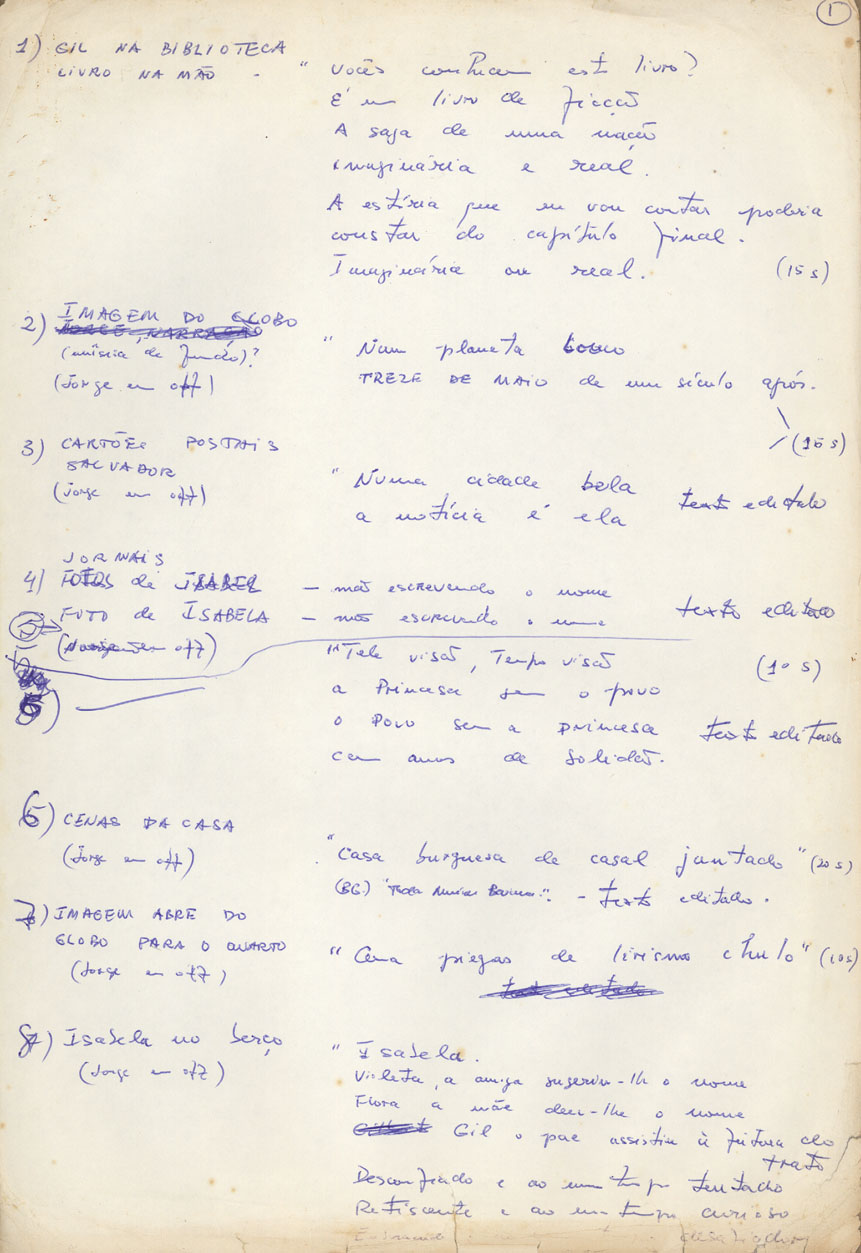 1
1) GIL NA BIBLIOTECA
LIVRO NA MÃO - " Vocês conhecem este livro?
É um livro de ficção
A saga de uma nação
imaginária e real.
A estória que eu vou contar poderia
constar do capítulo final.
Imaginária ou real. (15 s)
2) IMAGEM DO GLOBO
(música de fundo)? " Num planeta
(Jorge em off) TREZE DE MAIO de um século após.
(15 s)
3) CARTÕES POSTAIS
SALVADOR
(Jorge em off) " Numa cidade bela texto editado
a notícia é ela
JORNAIS
4) de ISABEL - mão escrevendo o nome
FOTO de ISABELA - mão escrevendo o nome texto editado
5
(em off) "Tele visão, Tempo visão (10 s)
a Princesa sem o povo
o Povo sem a princesa texto editado
cem anos de solidão.
6) CENAS DA CASA
(Jorge em off) "Casa burguesa de casal juntado" (20 s)
(BG.) - texto editado.
7) IMAGEM ABRE DO
GLOBO PARA O QUARTO " Cena piegas de lirismo chulo" (10s)
(Jorge em off)
8) Isabela no berço " Isabela.
(Jorge em off) Violeta, a amiga sugeriu-lhe o nome
Flora a mãe deu-lhe o nome
Gil o pae assistiu à feitura do
trato
Desconfiado e ao mesmo tempo tentado
Retiscente e ao mesmo tempo curioso